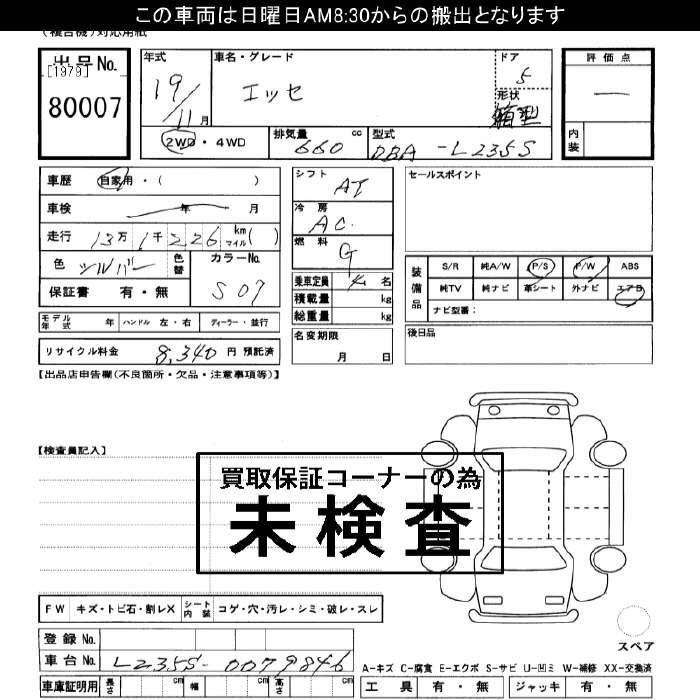 この車両は日曜日AM8:30からの搬出となります
(複合機)対応用紙
出品No.
[1979]
80007
年式
19/11月
車名・グレード
エッセ
ドア
5
形状
箱型
2WD・4WD
排気量 660 cc
型式 DBA-L235S
評価点
一
内装
車歴 自家用・( )
車検 年 月
走行 13万1千226 km マイル( )
色 シルバー 色替
カラーNo. S07
保証書 有・無
シフト AT
冷房 AC
燃料 G
乗車定員 4名
積載量 kg
総重量 kg
名変期限
月 日
セールスポイント
装備品
S/R 純A/W P/S P/W ABS
純TV 純ナビ 革シート 外ナビ エアB
ナビ型番:
後日品
モデル年式 年 ハンドル 左・右 ディーラー・並行
リサイクル料金 8,340 円 預託済
【出品店申告欄(不良箇所・欠品・注意事項等)】
【検査員記入】
買取保証コーナーの為
未検査
FW キズ・トビ石・割レX シート内装 コゲ・穴・汚レ・シミ・破レ・スレ
スペア
登録No.
車台No. L235S-0079846
A-キズ C-腐食 E-エクボ S-サビ U-凹ミ W-補修 XX-交換済
車庫証明用 長さ cm 幅 cm 高さ cm
工具 有・無 ジャッキ 有・無